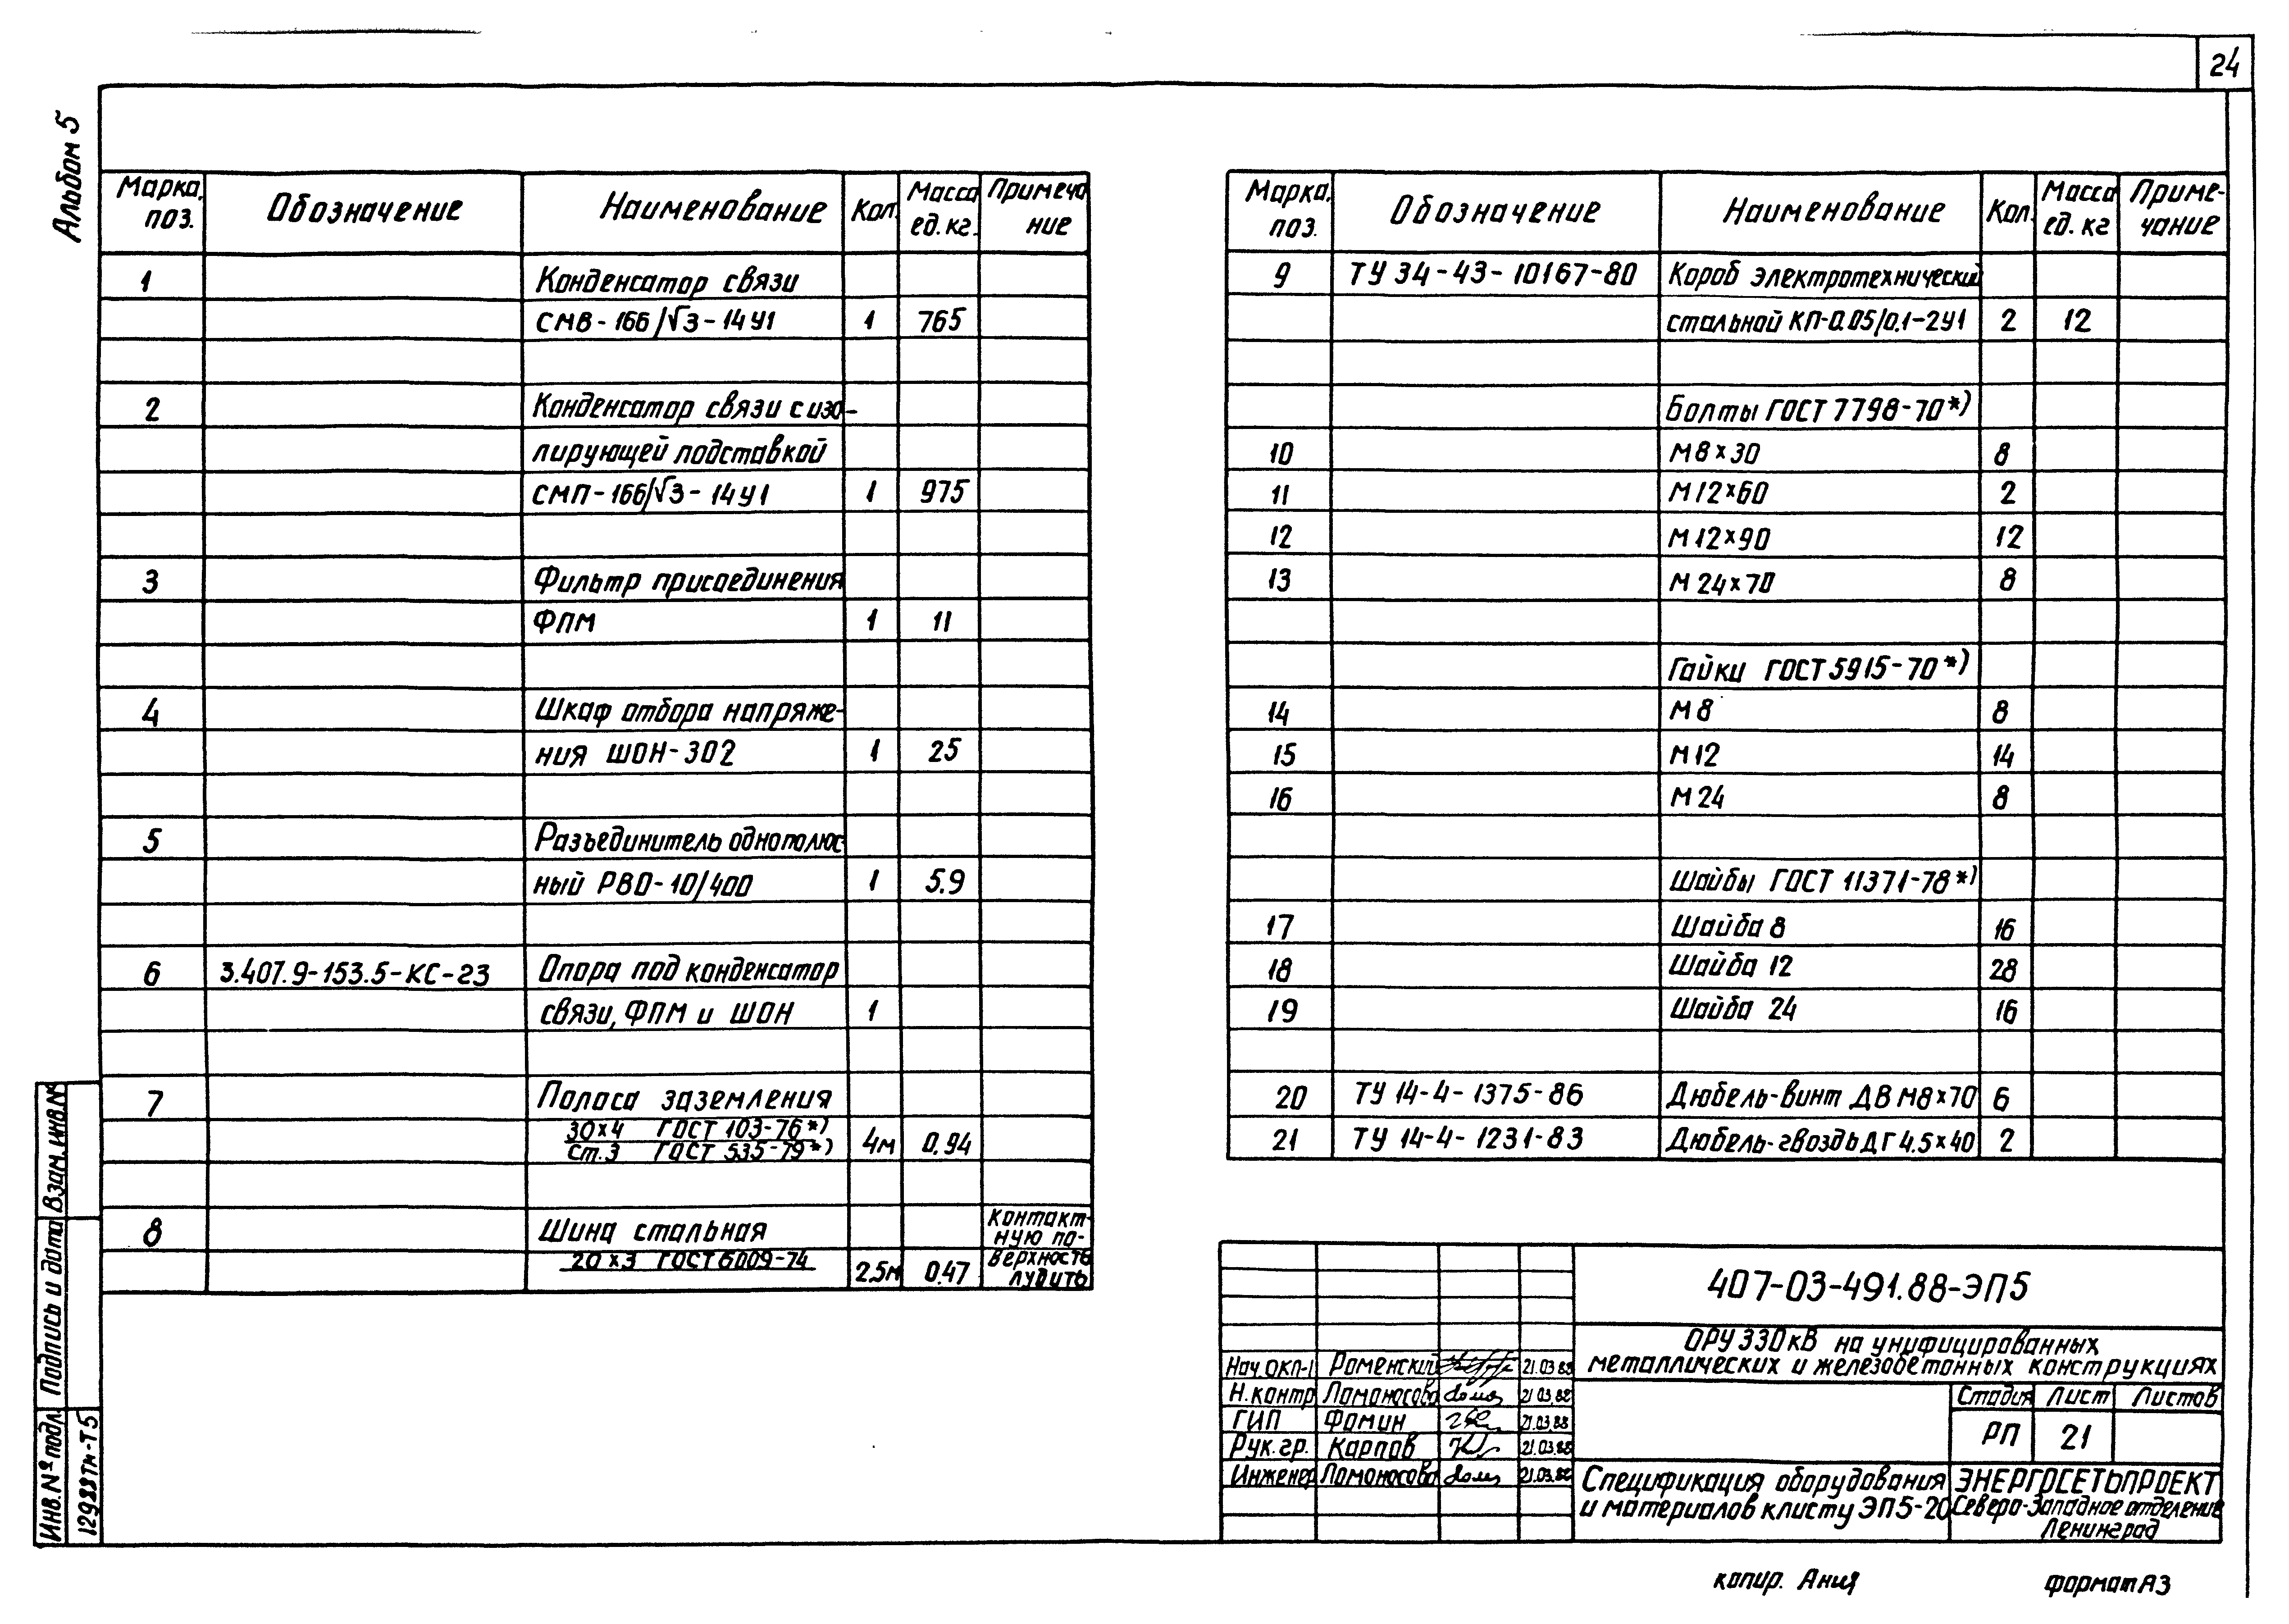 24
Альбом 5
Марка, поз. Обозначение Наименование Кол. Масса ед. кг. Примеча ние
1 Конденсатор связи
СМВ-166/√3-14У1 1 765
2 Конденсатор связи с изо-
лирующей подставкой
СМП-166/√3-14У1 1 975
3 Фильтр присоединения
ФПМ 1 11
4 Шкаф отбора напряже-
ния ШОН-302 1 25
5 Разъединитель однополюс-
ный РВО-10/400 1 5.9
6 3.407.9-153.5-КС-23 Опора под конденсатор
связи, ФПМ и ШОН 1
7 Полоса заземления
30×4 ГОСТ 103-76*)
Ст.3 ГОСТ 535-79*) 4м 0.94
8 Шина стальная
20×3 ГОСТ 6009-74 2.5м 0.47
Контакт-
ную по-
верхность
лудить
Марка, поз. Обозначение Наименование Кол. Масса ед. кг Приме- чание
9 ТУ 34-43-10167-80 Короб электротехнический
стальной КП-0.05/0.1-2У1 2 12
Болты ГОСТ 7798-70*)
10 М8×30 8
11 М12×60 2
12 М12×90 12
13 М24×70 8
Гайки ГОСТ 5915-70*)
14 М8 8
15 М12 14
16 М24 8
Шайбы ГОСТ 11371-78*)
17 Шайба 8 16
18 Шайба 12 28
19 Шайба 24 16
20 ТУ 14-4-1375-86 Дюбель-винт ДВ М8×70 6
21 ТУ 14-4-1231-83 Дюбель-гвоздь ДГ 4.5×40 2
407-03-491.88-ЭП5
ОРУ 330кВ на унифицированных
металлических и железобетонных конструкциях
Нач.ОКП-1 Роменский 21.03.88
Н.контр Ломоносова 21.03.88
ГИП Фомин 21.03.88
Рук.гр. Карпов 21.03.88
Инженер Ломоносова 21.03.88
Стадия Лист Листов
РП 21
Спецификация оборудования
и материалов к листу ЭП5-20
ЭНЕРГОСЕТЬПРОЕКТ
Северо-Западное отделение
Ленинград
Взам.инв.№
Подпись и дата
Инв.№ подл.
12988тм-Т5
копир. Ания
формат А3